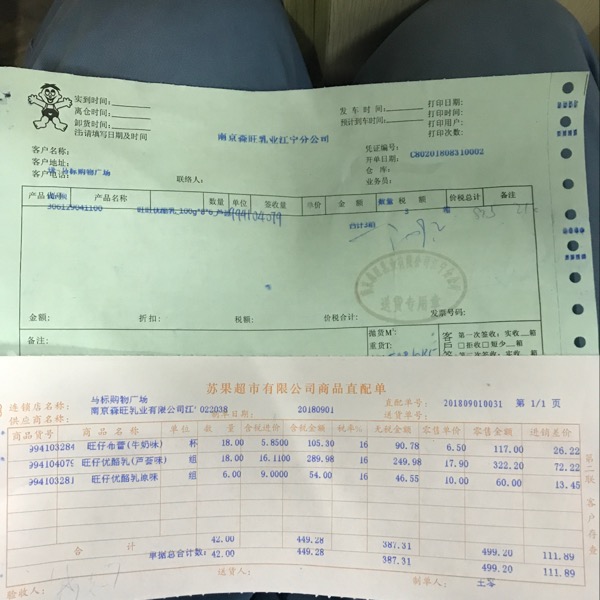 实到时间:
离仓时间:
卸货时间:
注:请填写日期及时间
发车时间:
预计到车时间:
打印日期:
打印时间:
打印用户:
打印次数:
南京淼旺乳业江宁分公司
客户名称:
客户地址:
客户电话:
马标购物广场
联系人:
凭证编号:
开单日期: C80201808310002
仓库:
业务员:
产品代号 产品名称 数量 单位 签收量 单价 金额 数量 税额 价税总计 备注
306129041100
合计3箱
送货专用章
金额: 折扣: 税额: 价税合计: 发票号码:
备注:
抛货M³:
重货T:
客户
第一次签收:实收 箱
□拒收□短少 箱
苏果超市有限公司商品直配单
连锁店名称: 马标购物广场
供应商名称: 南京淼旺乳业有限公司江' 022038
制单日期: 20180901
直配单号: 201809010031 第 1/1 页
送货单号:
商品货号 商品名称 单位 数量 含税进价 含税金额 税率% 无税金额 零售单价 零售金额 进销差价
994103284 旺仔布蕾(牛奶味) 杯 18.00 5.8500 105.30 16 90.78 6.50 117.00 26.22
99410407 旺仔优酪乳(芦荟味) 组 18.00 16.1100 289.98 16 249.98 17.90 322.20 72.22
994103281 旺仔优酪乳原味 组 6.00 9.0000 54.00 16 46.55 10.00 60.00 13.45
合计 42.00 449.28 387.31 499.20 111.89
单据总合计数: 42.00 449.28 387.31 499.20 111.89
验收人: 送货人: 制单人:
第二联 客户存查